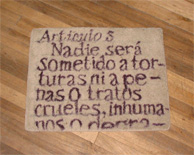 Artículo 5
Nadie será
sometido a tor-
turas ni a pe-
nas o tratos
crueles, inhuma-
nos o degra-